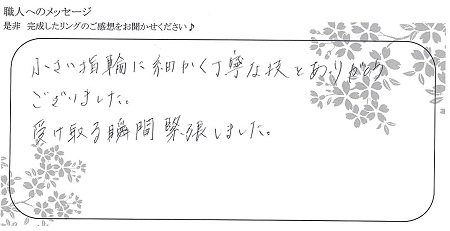 職人へのメッセージ
是非 完成したリングのご感想をお聞かせください♪
小さい指輪に細かく丁寧な技とありがとう
ございました。
受け取る瞬間緊張しました。